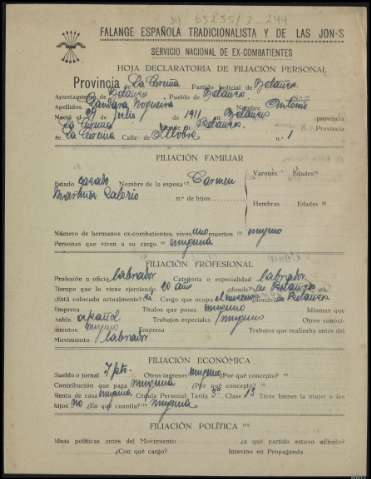 65255/2-244
FALANGE ESPAÑOLA TRADICIONALISTA Y DE LAS JON-S
SERVICIO NACIONAL DE EX-COMBATIENTES
HOJA DECLARATORIA DE FILIACIÓN PERSONAL
Provincia La Coruña Partido judicial de Betanzos
Ayuntamiento de Betanzos, Pueblo de Betanzos
Apellidos Nogueira Nombre Antonio
Nació el de Julio de 1911 en Betanzos provincia
La Coruña Betanzos Provincia
de La Coruña Calle de n.° 1
FILIACIÓN FAMILIAR
Estado casado Nombre de la esposa Carmen Varones Edades
Martínez n.° de hijos
Hembras Edades
Número de hermanos ex-combatientes, vivos uno muertos ninguno
Personas que viven a su cargo ninguna
FILIACIÓN PROFESIONAL
Profesión u oficio labrador Categoría o especialidad labrador
Tiempo que lo viene ejerciendo 20 año ¿dónde en Betanzos
¿Está colocado actualmente si Cargo que ocupa el mismo ¿dónde en Betanzos
Empresa Títulos que posee ninguno Idiomas que
habla español Trabajos especiales ninguno Otros conoci-
mientos ninguno Empresa Trabajos que realizaba antes del
Movimiento labrador
FILIACIÓN ECONÓMICA
Sueldo o jornal 7 pts. Otros ingresos ninguno ¿Por qué concepto?
Contribución que paga ninguna ¿Por qué concepto?
Renta de casa ninguna Cédula Personal Tarifa 3ª Clase 13 Tiene bienes la mujer o los
hijos no ¿En qué cuantía? ninguna
FILIACIÓN POLÍTICA
Ideas políticas antes del Movimiento ¿a qué partido estuvo afiliado?
¿Con qué cargo? Intervino en Propaganda